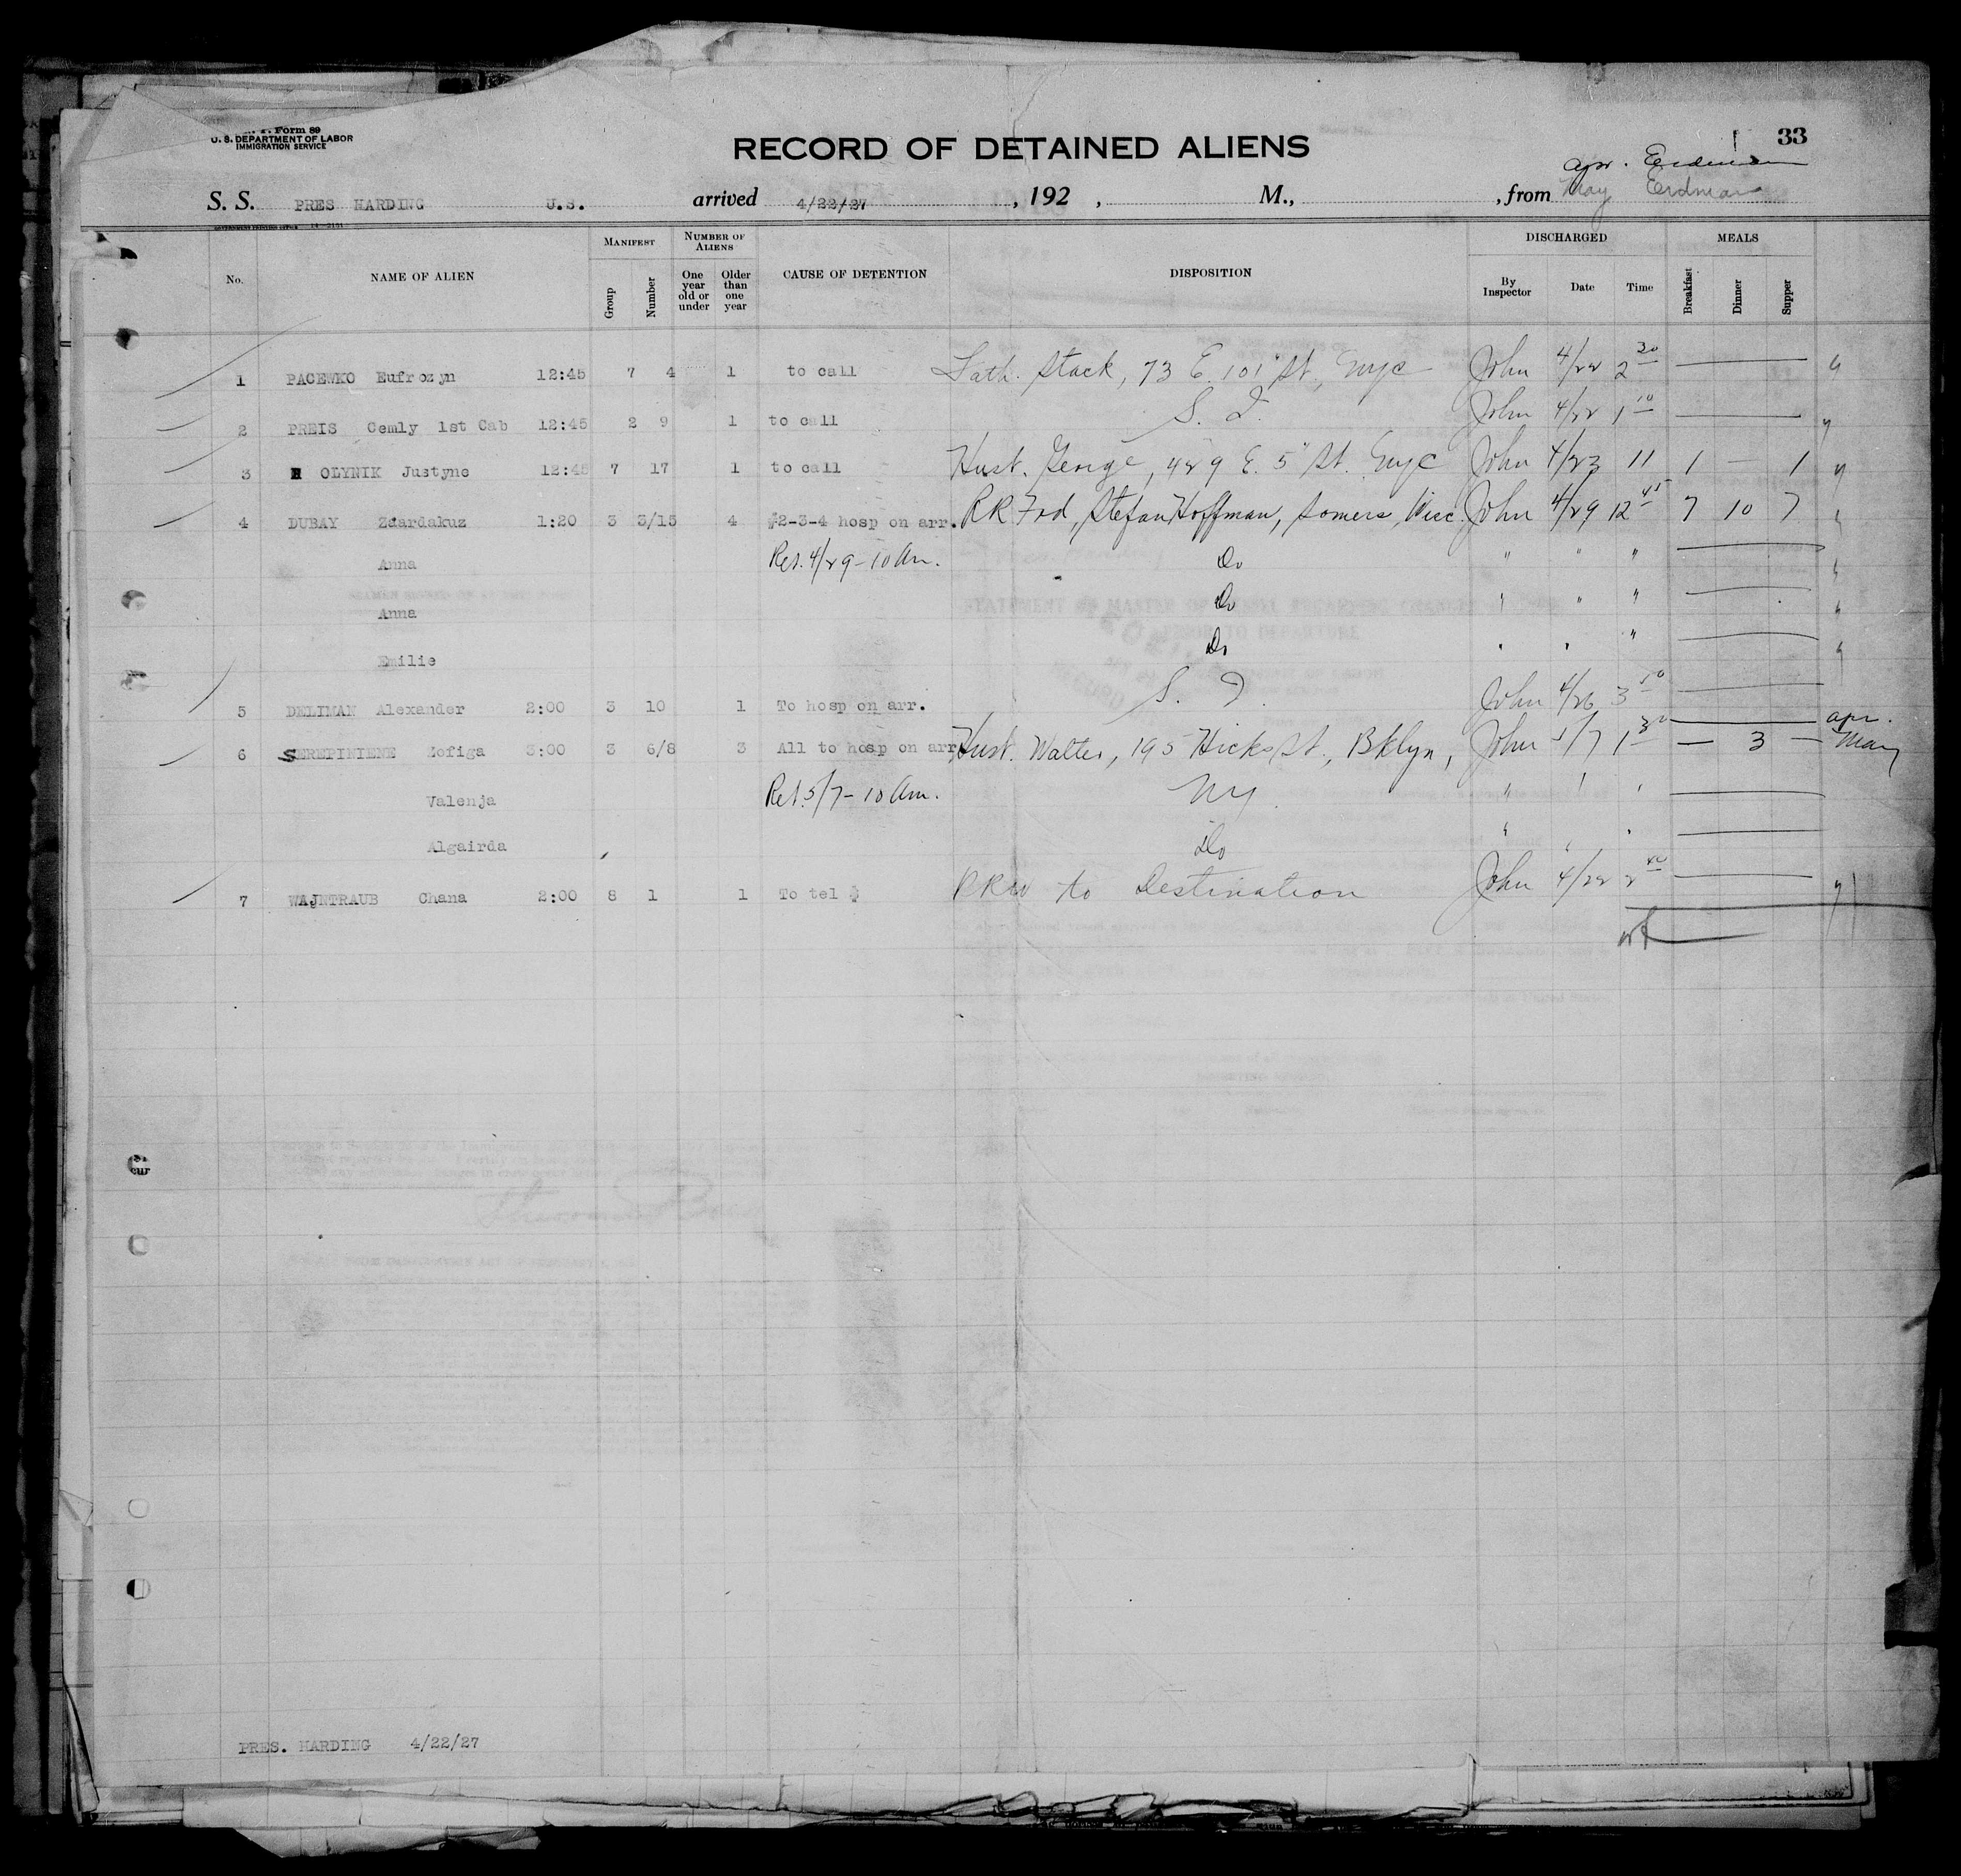 Form 89
U. S. DEPARTMENT OF LABOR
IMMIGRATION SERVICE
RECORD OF DETAINED ALIENS
33
Apr. Erdman
S. S. PRES HARDING U.S. arrived 4/22/27, 192 , M., , from May Erdman
No. NAME OF ALIEN MANIFEST Group Number NUMBER OF ALIENS One year old or under Older than one year CAUSE OF DETENTION DISPOSITION DISCHARGED By Inspector Date Time MEALS Breakfast Dinner Supper
1 PACEWKO Eufrozyn 12:45 7 4 1 to call Fath. Stack, 73 E. 101" St., NYC John 4/22 2 30
2 PREIS Cemly 1st Cab 12:45 2 9 1 to call S. I. John 4/22 1 10
3 OLYNIK Justyne 12:45 7 17 1 to call Husb. George, 429 E. 5" St. NYC John 4/23 11 1 — 1
4 DUBAY Zsardakuz 1:20 3 3/15 4 #2-3-4 hosp on arr. RR Frd, Stefan Hoffman, Somers, Wisc. John 4/29 12 45 7 10 7
Anna Ret. 4/29 - 10 Am. Do " " "
Anna Do " " "
Emilie Do " " "
5 DELIMAN Alexander 2:00 3 10 1 To hosp on arr. S. I. John 4/26 3 50
Apr.
6 SEREPINIENE Zofiga 3:00 3 6/8 3 All to hosp on arr. Husb. Walter, 195 Hicks St., Bklyn, John 5/7 1 30 — 3 — May
Valenja Ret. 5/7 - 10 Am. NY. " " "
Algairda Do " " "
7 WAJNTRAUB Chana 2:00 8 1 1 To tel $ RRW to Destination John 4/22 2 40
PRES. HARDING 4/22/27